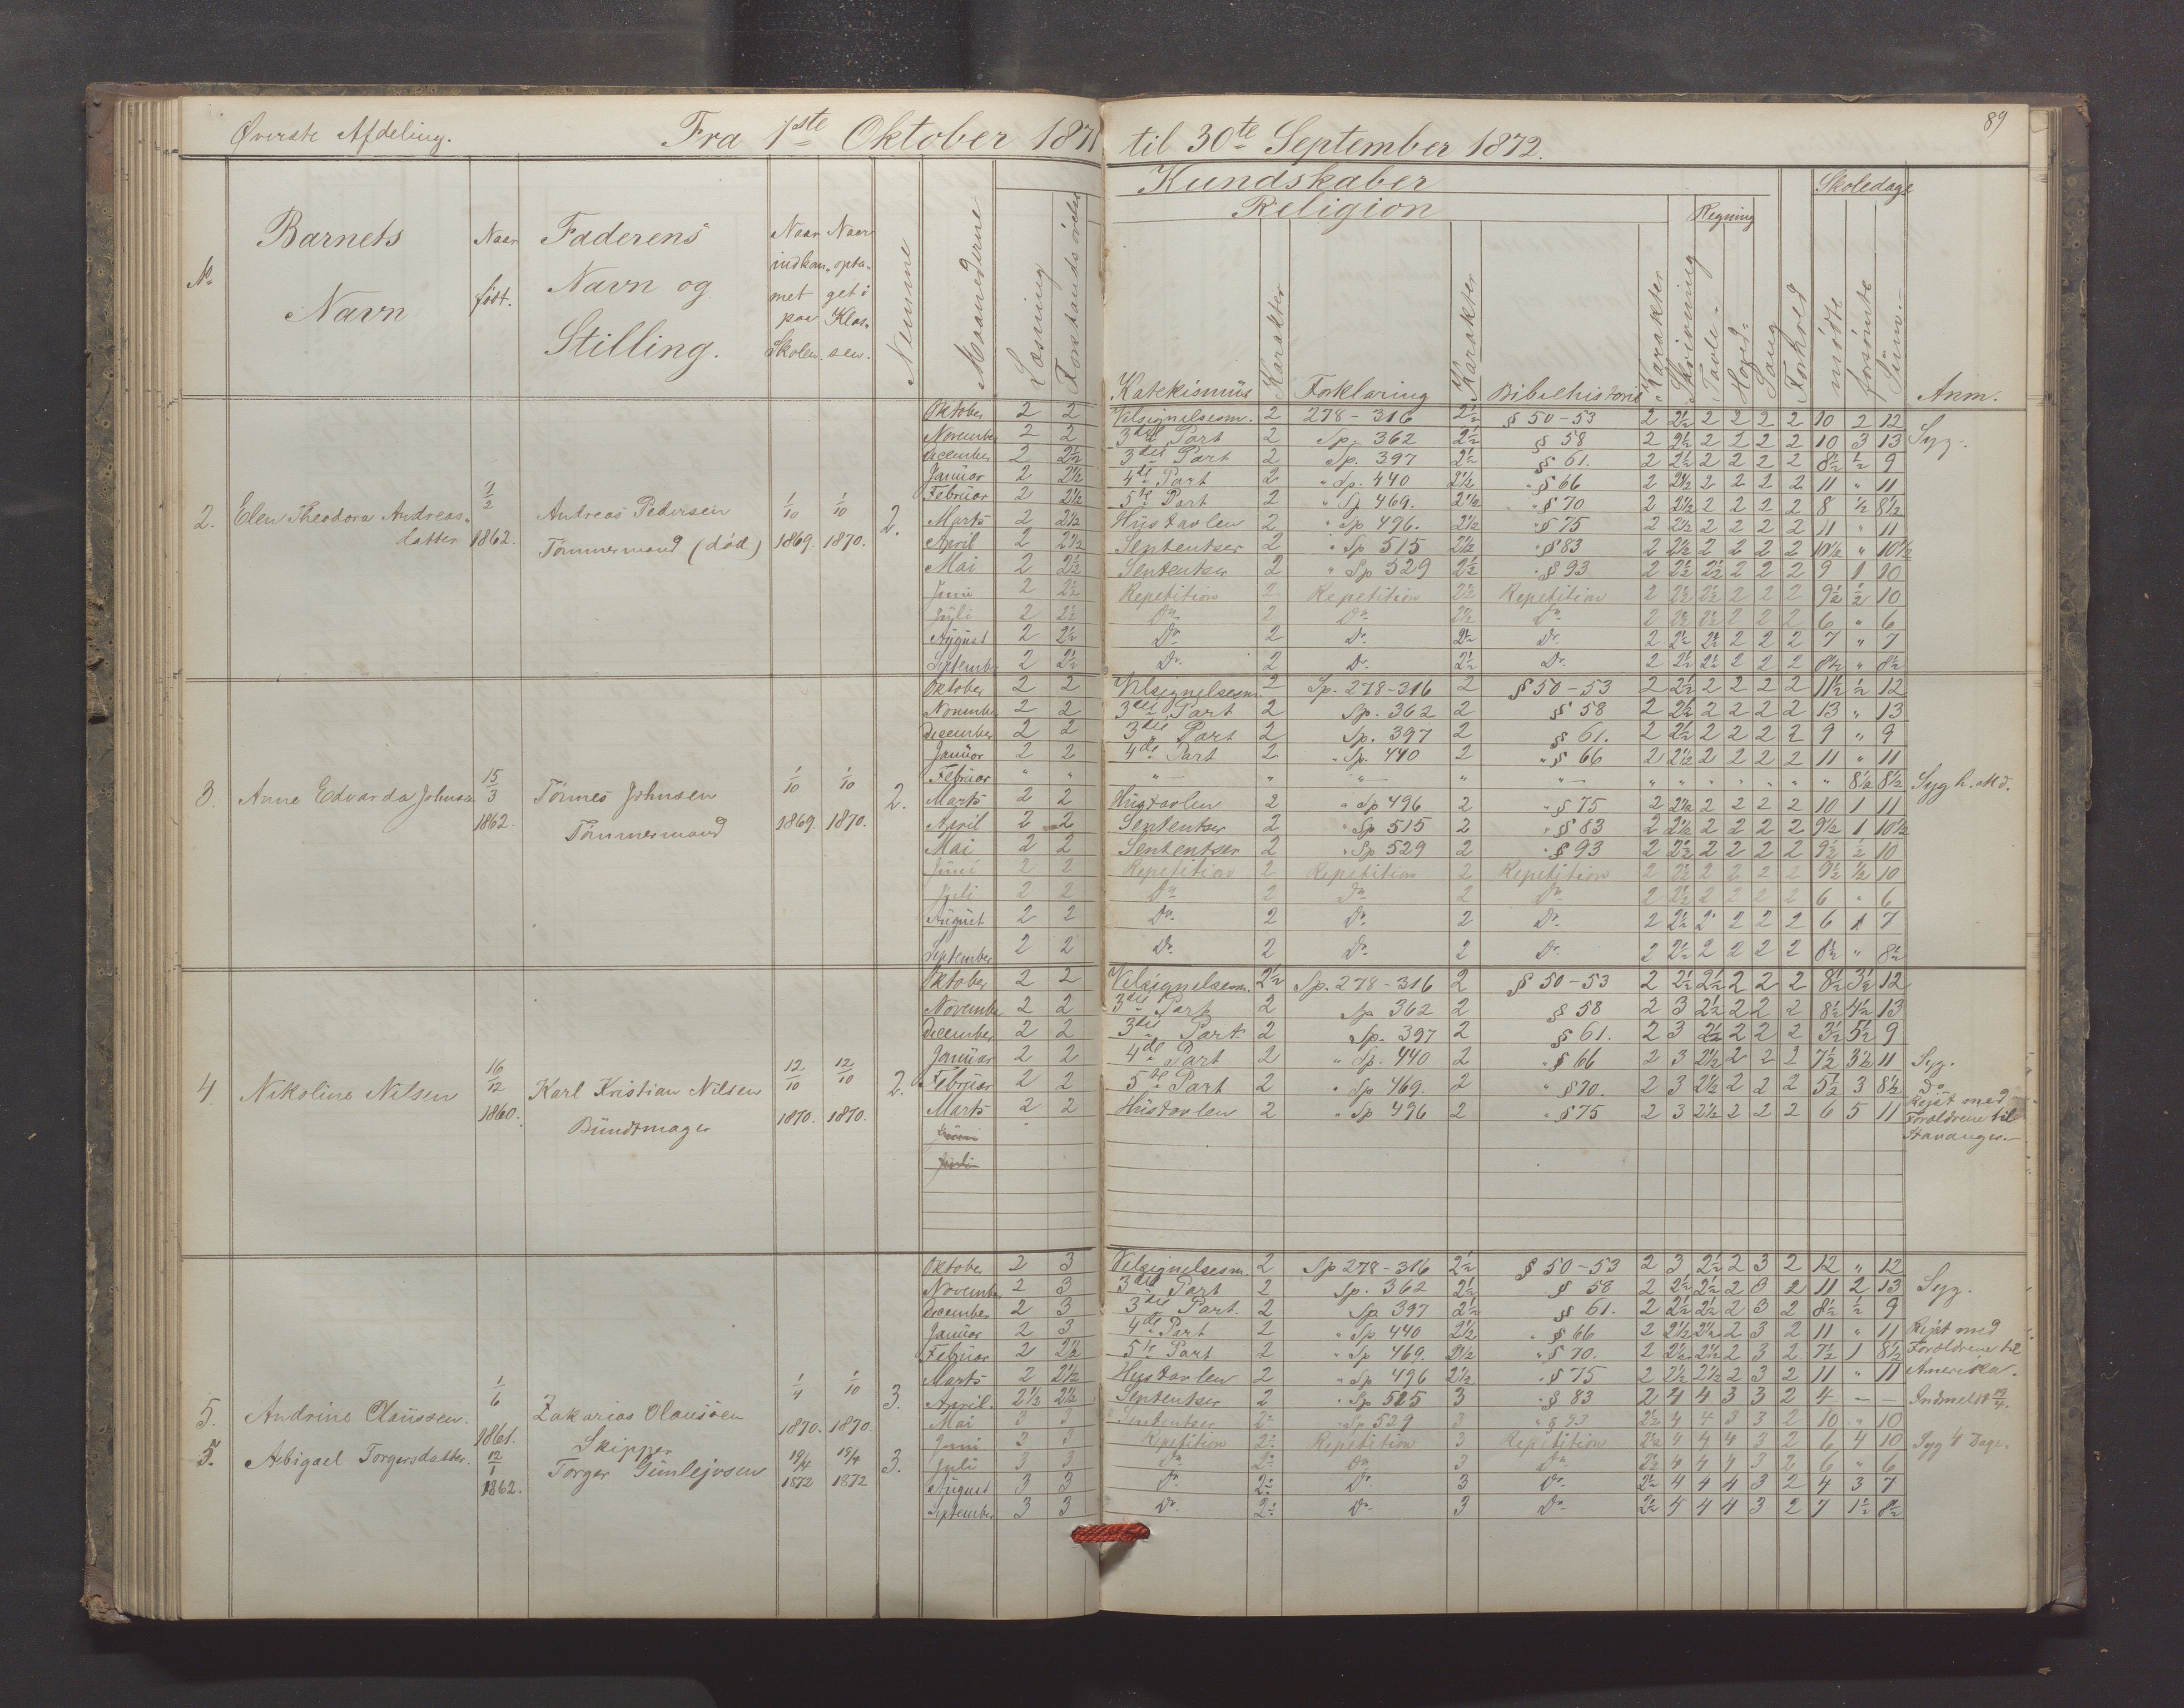 89
Øverste Afdeling. Fra 1ste Oktober 1871 til 30te September 1872.
Kundskaber Skoledage
Religion Regning
No Barnets Navn Naar født. Faderens Navn og Stilling. Naar indkommet paa Skolen. Naar optaget i Klassen. Nemme Maanederne Læsning Forstandsøvelse Katekismus Karakter Forklaring Karakter Bibelhistorie Karakter Skrivning Tavle- Hoved- Sang Forhold mødte forsømte Sum. Anm.
2. Elen Theodora Andreasdatter 1/2 1862. Andreas Pedersen Tømmermand (død) 1/10 1869. 1/10 1870. 2.
Oktober 2 2 Velsignelsesm. 2 278-316 2½ § 50-53 2 2½ 2 2 2 2 10 2 12
November 2 2 3die Part 2 Sp. 362 2½ § 58 2 2½ 2 2 2 2 10 3 13 Syg.
December 2 2½ 3die Part 2 Sp. 397 2½ § 61. 2 2½ 2 2 2 2 8½ ½ 9
Januar 2 2½ 4de Part 2 " Sp. 440 2½ " § 66 2 2½ 2 2 2 2 11 " 11
Februar 2 2½ 5te Part 2 " Sp 469. 2½ " § 70 2 2½ 2 2 2 2 8 ½ 8½
Marts 2 2½ Hustavlen 2 " Sp 496. 2½ " § 75 2 2½ 2 2 2 2 11 " 11
April 2 2½ Sententser 2 " Sp 515 2½ " § 83 2 2½ 2 2 2 2 10½ " 10½
Mai 2 2½ Sententser 2 " Sp 529 2½ " § 93 2 2½ 2½ 2 2 2 9 1 10
Juni 2 2½ Repetition 2 Repetition 2½ Repetition 2 2½ 2½ 2 2 2 9½ ½ 10
Juli 2 2½ Do 2 Do 2½ Do 2 2½ 2½ 2 2 2 6 " 6
August 2 2½ Do 2 Do 2½ Do 2 2½ 2½ 2 2 2 7 " 7
September 2 2½ Do 2 Do 2½ Do 2 2½ 2½ 2 2 2 8½ " 8½
3. Anne Edvarda Johnsen 15/3 1862. Tønnes Johnsen Tømmermand 1/10 1869. 1/10 1870. 2.
Oktober 2 2 Velsignelsesm. 2 Sp. 278-316 2 § 50-53 2 2½ 2 2 2 2 11½ ½ 12
November 2 2 3die Part 2 Sp. 362 2 § 58 2 2½ 2 2 2 2 13 " 13
December 2 2 3die Part 2 Sp. 397 2 § 61. 2 2½ 2 2 2 2 9 " 9
Januar 2 2 4de Part 2 " Sp. 440 2 " § 66 2 2½ 2 2 2 2 11 " 11
Februar " " " " " " " " " " " " " " 8½ 8½ Syg h. Md.
Marts 2 2 Hustavlen 2 " Sp 496 2 " § 75 2 2½ 2 2 2 2 10 1 11
April 2 2 Sententser 2 " Sp 515 2 " § 83 2 2½ 2 2 2 2 9½ 1 10½
Mai 2 2 Sententser 2 " Sp 529 2 " § 93 2 2½ 2 2 2 2 9½ ½ 10
Juni 2 2 Repetition 2 Repetition 2 Repetition 2 2½ 2 2 2 2 9½ ½ 10
Juli 2 2 Do 2 Do 2 Do 2 2½ 2 2 2 2 6 " 6
August 2 2 Do 2 Do 2 Do 2 2½ 2 2 2 2 6 1 7
September 2 2 Do 2 Do 2 Do 2 2½ 2 2 2 2 8½ " 8½
4. Nikoline Nilsen 16/12 1860. Karl Kristian Nilsen Bundtmager 12/10 1870. 12/10 1870. 2.
Oktober 2 2 Velsignelsesm. 2½ Sp. 278-316 2 § 50-53 2 2½ 2½ 2 2 2 8½ 3½ 12
November 2 2 3die Part 2 Sp 362 2 § 58 2 3 2½ 2 2 2 8½ 4½ 13
December 2 2 3die Part 2 Sp. 397 2 § 61. 2 3 2½ 2 2 2 3½ 5½ 9
Januar 2 2 4de Part 2 " Sp. 440 2 " § 66 2 3 2½ 2 2 2 7½ 3½ 11 Syg.
Februar 2 2 5te Part 2 " Sp 469. 2 " § 70. 2 3 2½ 2 2 2 5½ 3 8½ Do
Marts 2 2 Hustavlen 2 " Sp 496 2 " § 75 2 3 2½ 2 2 2 6 5 11 Rejst med Forældrene til Stavanger.
Juni
Juli
5. Andrine Olaussen. 1/6 1861. Zakarias Olaussen Skipper 1/4 1870. 1/10 1870. 3.
5. Abigael Torgersdatter. 12/1 1862. Torger Gunlejvsen 19/4 1872 19/4 1872 3.
Oktober 2 3 Velsignelsesm. 2 Sp 278-316 2½ § 50-53 2 3 2½ 2 3 2 12 " 12
November 2 3 3die Part 2 Sp. 362 2½ § 58 2 2½ 2½ 2 3 2 11 2 13 Syg.
December 2 3 3die Part. 2 Sp 397 2½ § 61. 2 2½ 2½ 2 3 2 8½ ½ 9
Januar 2 3 4de Part 2 " Sp 440 2½ " § 66 2 2½ 2½ 2 3 2 11 " 11 Rejst med
Februar 2 2½ 5te Part 2 " Sp 469. 2½ " § 70. 2 2½ 2½ 2 3 2 7½ 1 8½ Forældrene til
Marts 2 2½ Hustavlen 2 " Sp 496 2½ " § 75 2 2½ 2½ 2 3 2 11 " 11 Amerika.
April. 2½ 2½ Sententser 2 " Sp 515 3 " § 83 2 4 4 3 3 2 4 — — Indmeldt 19/4.
Mai 3 3 Sententser 2½ " Sp 529 3 " § 93 2½ 4 4 3 3 2 10 " 10
Juni 3 3 Repetition 2½ Repetition 3 Repetition 2½ 4 4 4 3 2 6 4 10 Syg 4 Dage.
Juli 3 3 Do 2½ Do 3 Do 2½ 4 4 4 3 2 6 " 6
August 3 3 Do 2½ Do 3 Do 2½ 4 4 4 3 2 4 3 7
September 3 3 Do 2½ Do 3 Do 2½ 4 4 4 3 2 7 1½ 8½